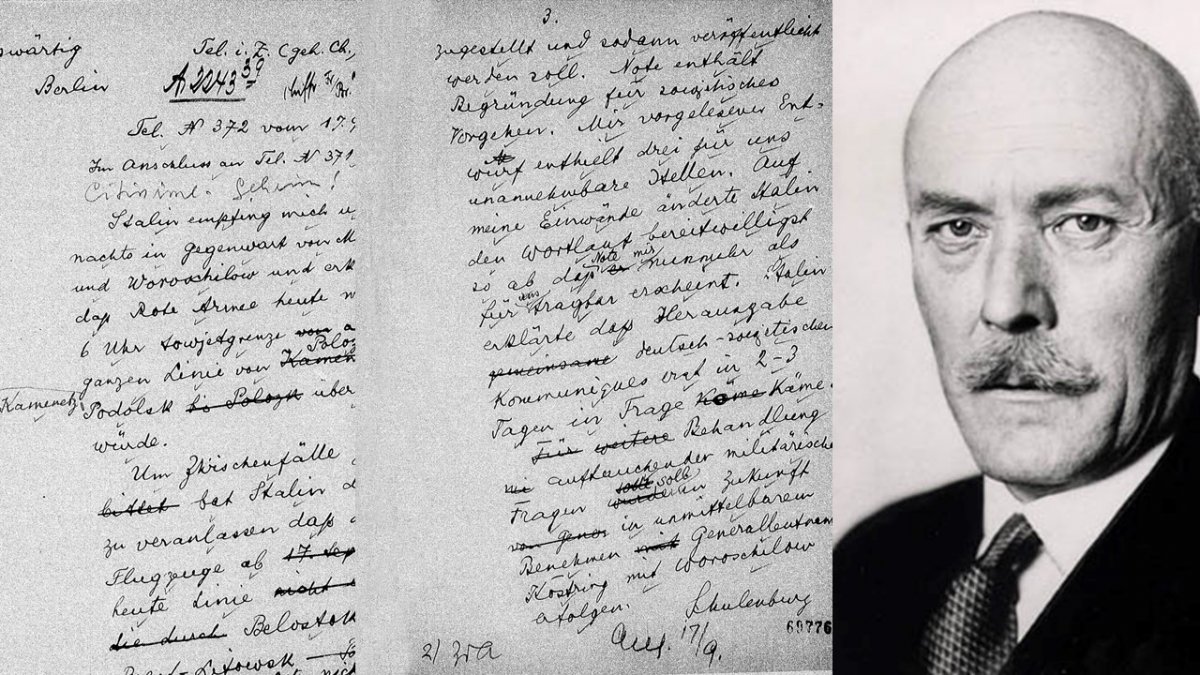 swärtig Tel. i. Z. (geh. Ch.
Berlin A 2243 39
Tel. N 372 vom 17.9
Im Anschluss an Tel. N 371
Citissime. Geheim!
Stalin empfing mich u
nachts in Gegenwart von M
und Woroschilow und erk
daß Rote Armee heute
6 Uhr Sowjetgrenze von a
ganzen Linie von Kamen Polo
Kamenetz Podolsk bis Polozk über
würde.
Um Zwischenfälle
bittet bat Stalin d
zu veranlassen daß
Flugzeuge ab 17 Sep
heute Linie nicht
die durch Belostok
Litowsk
3.
zugestellt und sodann veröffentlicht
werden soll. Note enthält
Begründung für sowjetisches
Vorgehen. Mir vorgelesener Ent-
wurf enthielt drei für uns
unannehmbare Stellen. Auf
meine Einwände änderte Stalin
den Wortlaut bereitwilligst
so ab daß Note mir nunmehr als
für uns tragbar erscheint. Stalin
erklärte daß Herausgabe
gemeinsame deutsch-sowjetischen
Kommuniques erst in 2-3
Tagen in Frage Käme Käme.
Für weitere Behandlung
auftauchender militärische
Fragen soll in Zukunft
von Genos in unmittelbarem
Benehmen mit Generalleutnan
Köstring mit Woroschilow
erfolgen.
Schulenburg
17/9.
69776
2) ZdA